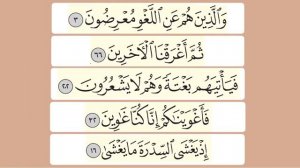 وَٱلَّذِينَ هُمْ عَنِ ٱللَّغْوِ مُعْرِضُونَ ٣
ثُمَّ أَغْرَقْنَا ٱلْءَاخَرِينَ ٦٦
فَيَأْتِيَهُم بَغْتَةً وَهُمْ لَا يَشْعُرُونَ ٢٠٢
فَأَغْوَيْنَٰكُمْ إِنَّا كُنَّا غَٰوِينَ ٣٢
إِذْ يَغْشَى ٱلسِّدْرَةَ مَا يَغْشَىٰ ١٦